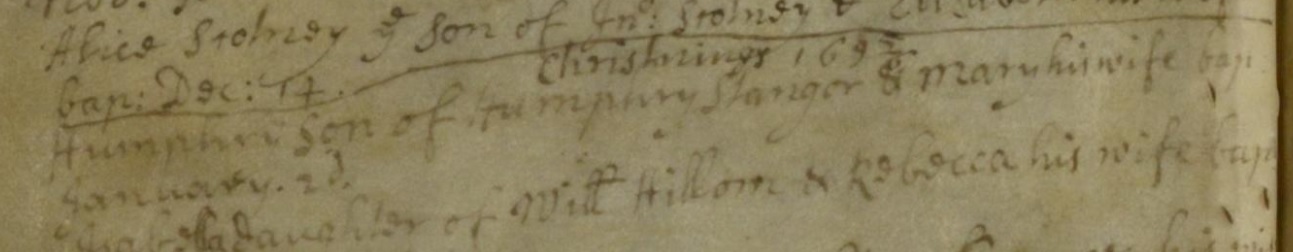 Alice Stolney ye son of Jno: Stolney &
bap: Dec: 14.
Christnings 169
Humphry son of Humphry Stanger & Mary his wife bap
January. 2d.
Isabella daughter of Will Hillom & Rebecca his wife bap